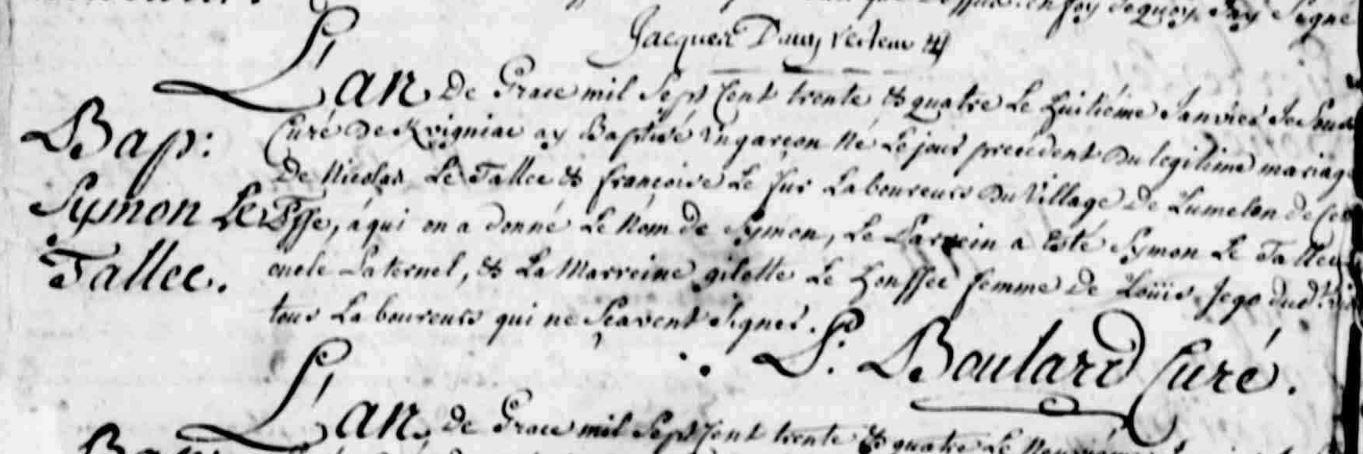 en foy de quoy Jay Signé
Jacques
L'an de Grace mil Sept Cent trente & quatre le huitième Janvier Je Sous
Curé De ay Baptisé un garçon né le jour precedent du legitime mariage
Bap:
De Nicolas Le Tallec & françoise Le fur Laboureurs Du Village de Lumelon de cet
Symon Le
à qui on a donné Le Nom de Symon, Le Parrein a Esté Symon Le Tallec
Tallec.
oncle Paternel, & La Marreine gilette Le houssec femme De Loüis Jego dud
tous Laboureurs qui ne Sçavent Signer.
Boulard Curé.
L'an de Grace mil Sept Cent trente & quatre le
Bap